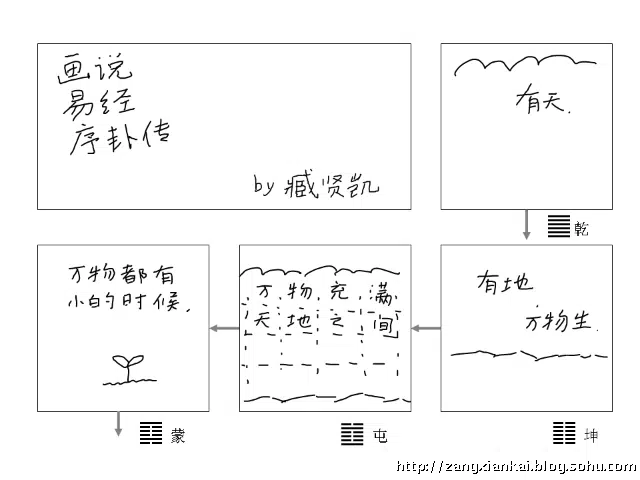 画说
易经
序卦传
by 臧贤凯
有天.
乾
有地
万物生.
坤
万物充满
天地之间
屯
万物都有
小白的时候.
蒙
http://zangxiankai.blog.sohu.com